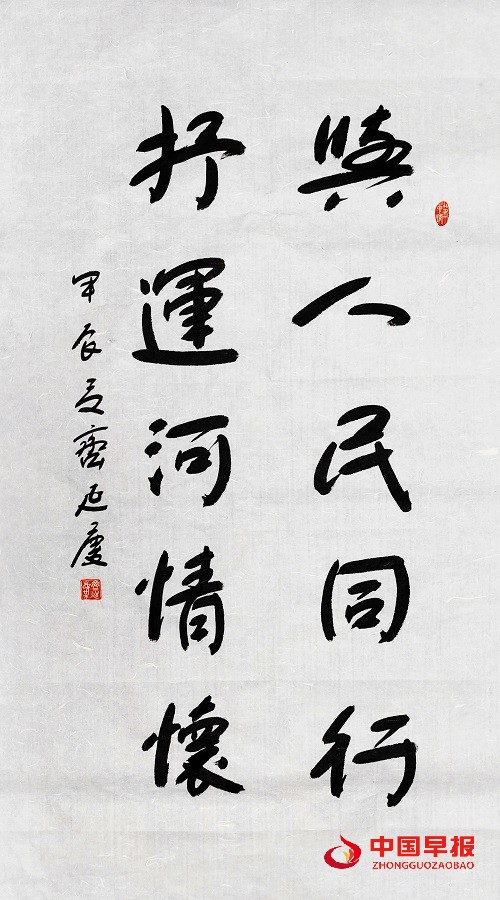 與人民同行
抒運河情懷
甲辰夏齊延慶
中国早报
ZHONGGUOZAOBAO